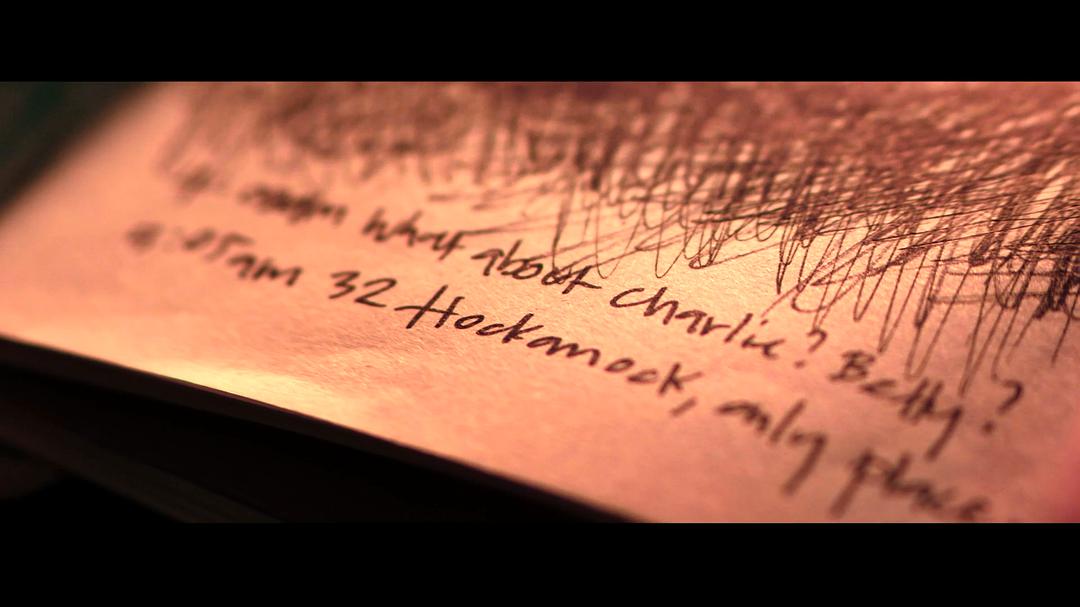 what about charlie? Betty?
:05am 32 Hockamock, only place